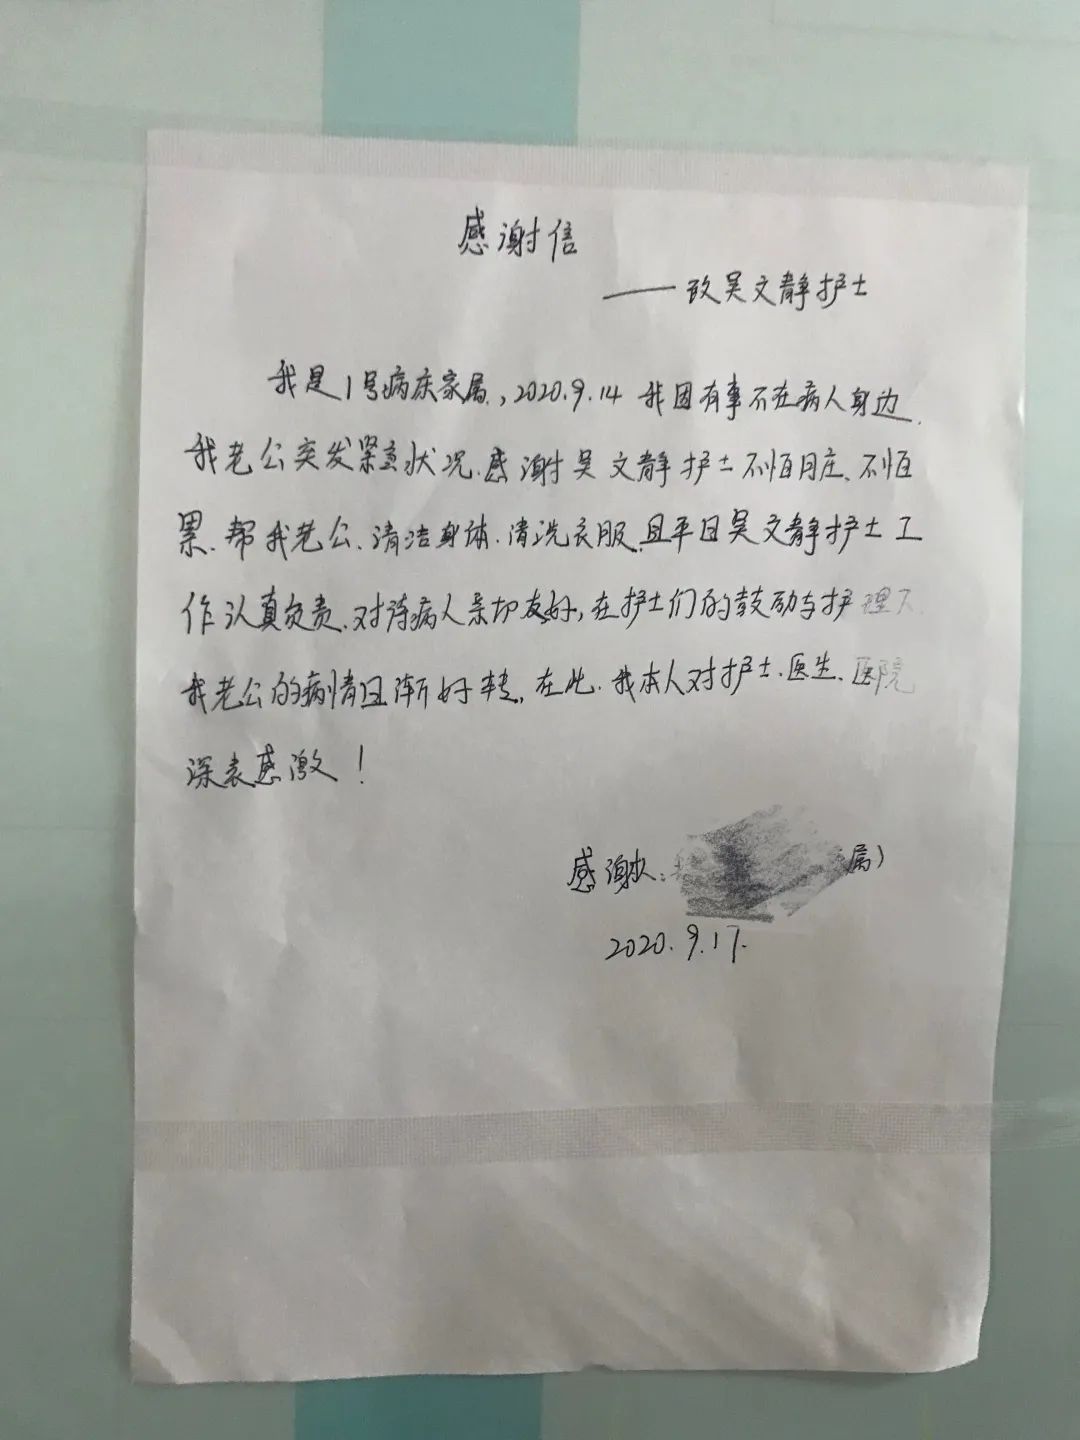 感谢信
——致吴文静护士
我是1号病床家属,2020.9.14 我因有事不在病人身边.
我老公突发紧急状况.感谢吴文静护士不怕脏、不怕
累.帮我老公.清洁身体.清洗衣服.且平日吴文静护士工
作认真负责.对待病人亲切友好,在护士们的鼓励与护理下.
我老公的病情日渐好转,在此.我本人对护士.医生.医院
深表感激!
感谢人: 属)
2020.9.17.